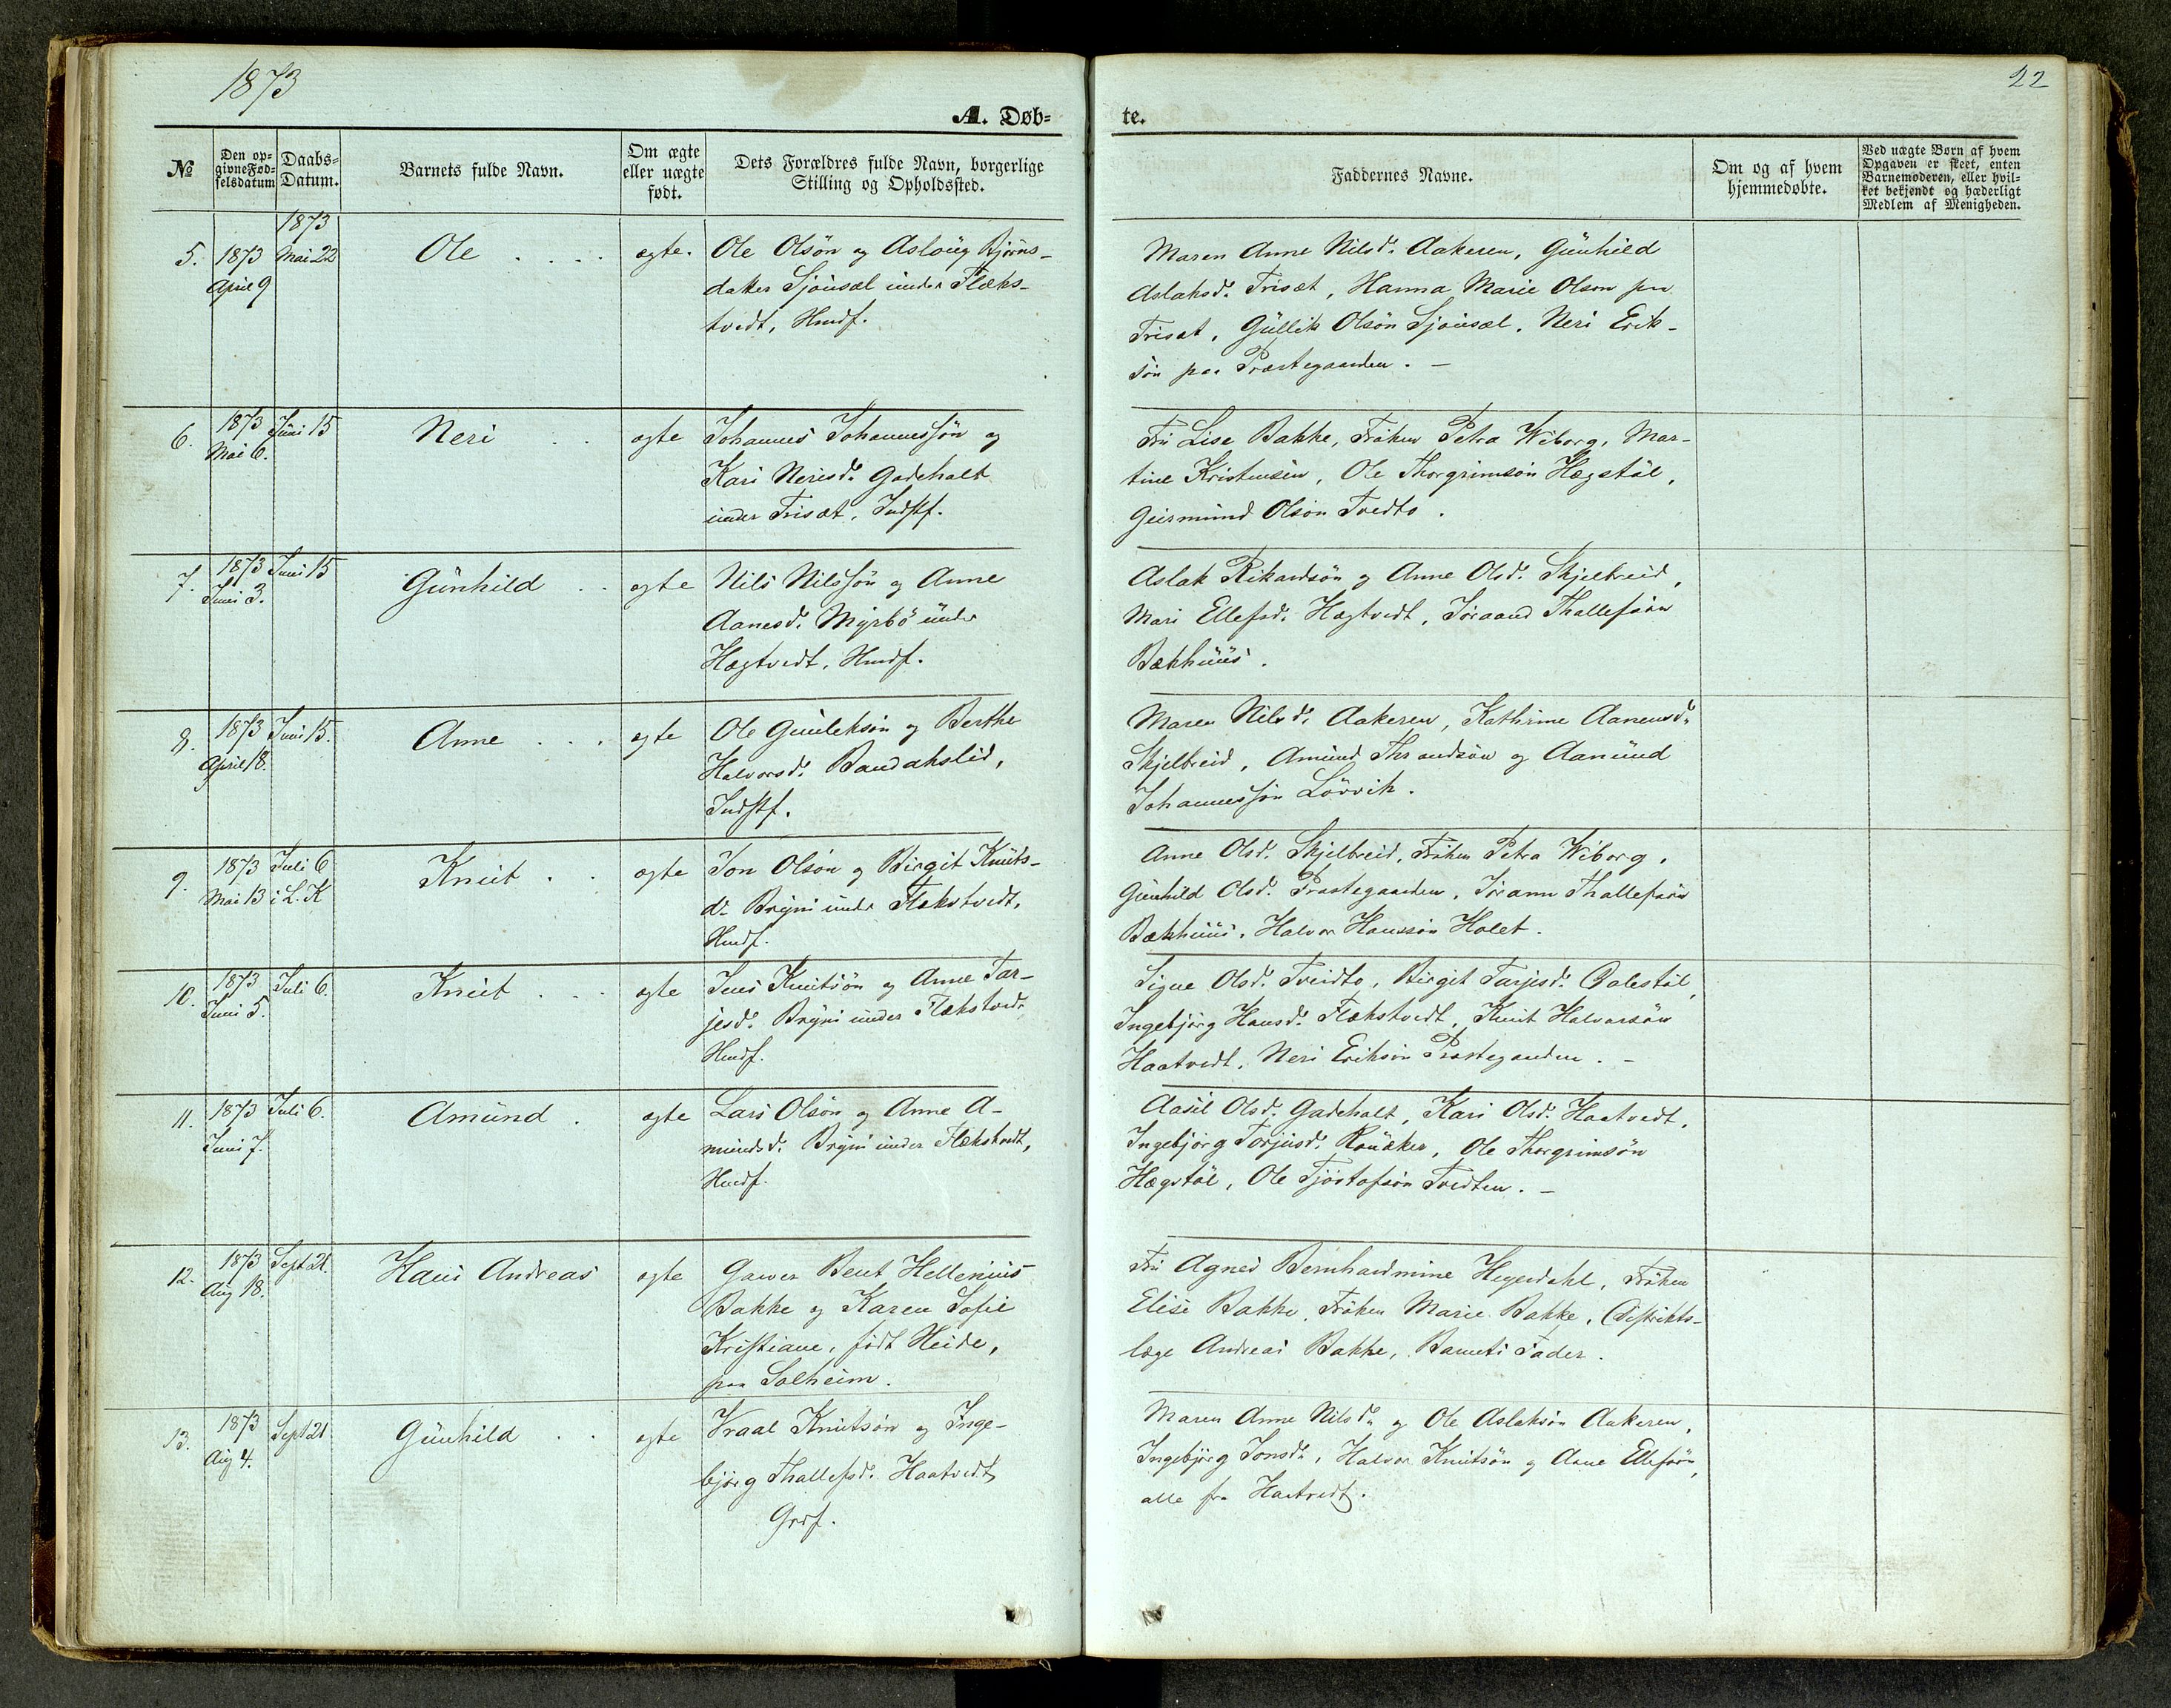 1873
22
A. Døb-
te.
№
Den op-
givne Fød-
selsdatum
Daabs-
Datum.
Barnets fulde Navn.
Om ægte
eller uægte
født.
Dets Forældres fulde Navn, borgerlige
Stilling og Opholdssted.
Faddernes Navne.
Om og af hvem
hjemmedøbte.
Ved uægte Børn af hvem
Opgaven er skeet, enten
Barnemoderen, eller hvil-
ket bekjendt og hæderligt
Medlem af Menigheden.
5.
1873
April 9
1873
Mai 22
Ole
ægte.
Ole Olsön og Aslaüg Bjørns-
datter Sjaüsæl ünder Flæks-
tvedt, Hmdf.
Maren Anne Nilsd. Aakeren, Günhild
Aslaksd. Trisæt, Hanna Marie Olsen paa
Trisæt, Güllik Olsön Sjaüsæl, Neri Erik-
sön paa Præstegaarden. –
6.
1873
Mai 6.
Jüni 15
Neri
ægte
Johannes Johannessön og
Kari Nerisd. Gadehalt
ünder Trisæt, Indstf.
Frü Lise Bakke, Fröken Petra Wiborg, Mar-
tine Kristensen, Ole Thorgrimsön Hægstöl,
Geirmünd Olsön Tvedto.
7.
1873
Juni 3.
Juni 15
Günhild
ægte
Nils Nilssön og Anne
Aanesd. Myrbö ünder
Hægtvedt, Hmdf.
Aslak Rikardsön og Anne Olsd. Skjelbreid,
Mari Ellefsd. Hægtvedt, Jöraand Thallefsön
Bækhüüs.
8.
1873
April 18.
Juni 15.
Anne
ægte
Ole Günleksön og Berthe
Halvorsd. Bandakslid,
Indstf.
Maren Nilsd. Aakeren, Kathrine Aanensd.
Skjelbreid, Amünd Throndsön og Aanünd
Johannessön Lövvik.
9.
1873
Mai 13
Juli 6
i L. K
Knüt
ægte
Jon Olsön og Birgit Knüts-
d. Bryni ünder Flækstvedt,
Hmdf.
Anne Olsd. Skjelbreid, Fröken Petra Wiborg,
Günhild Olsd. Præstegaarden, Jörann Thallefsön
Bækhüüs, Halvor Hanssön Holet.
10.
1873
Juni 5.
Juli 6.
Knüt
ægte
Jens Knütsön og Anne Tar-
jesd. Bryni ünder Flækstvedt
Hmdf.
Signe Olsd. Tveidto, Birgit Tarjesd. Dalestöl,
Ingebjörg Hansd. Flækstvedt, Knüt Halvorsön
Haatvedt, Neri Eriksön Præstegaarden. –
11.
1873
Juni 7.
Juli 6.
Amünd
ægte
Lars Olsön og Anne A-
mündsd. Bryni ünder Flækstvedt,
Hmdf.
Aasil Olsd. Gadehalt, Kari Olsd. Haatvedt,
Ingebjörg Torjüsd. Raüaker, Ole Thorgrimsön
Hægstöl, Ole Tjöstofsön Tvedten. –
12.
1873
Aüg 18.
Sept 21.
Hans Andreas
ægte
Garver Bent Hellenius
Bakke og Karen Sofie
Kristiane, födt Heide,
paa Solheim.
Frü Agnes Bernhardmine Heyerdahl, Fröken
Elise Bakke, Fröken Marie Bakke, Distrikts-
læge Andreas Bakke, Barnets Fader.
13.
1873
Aüg 4.
Sept 21
Günhild
ægte
Vraal Knütsön og Inge-
björg Thallefsd. Haatvedt
Grdf.
Maren Anne Nilsd. og Ole Aslaksön Aakeren,
Ingebjörg Jonsd., Halvor Knütsön og Aane Ellefsön,
alle fra Haatvedt.